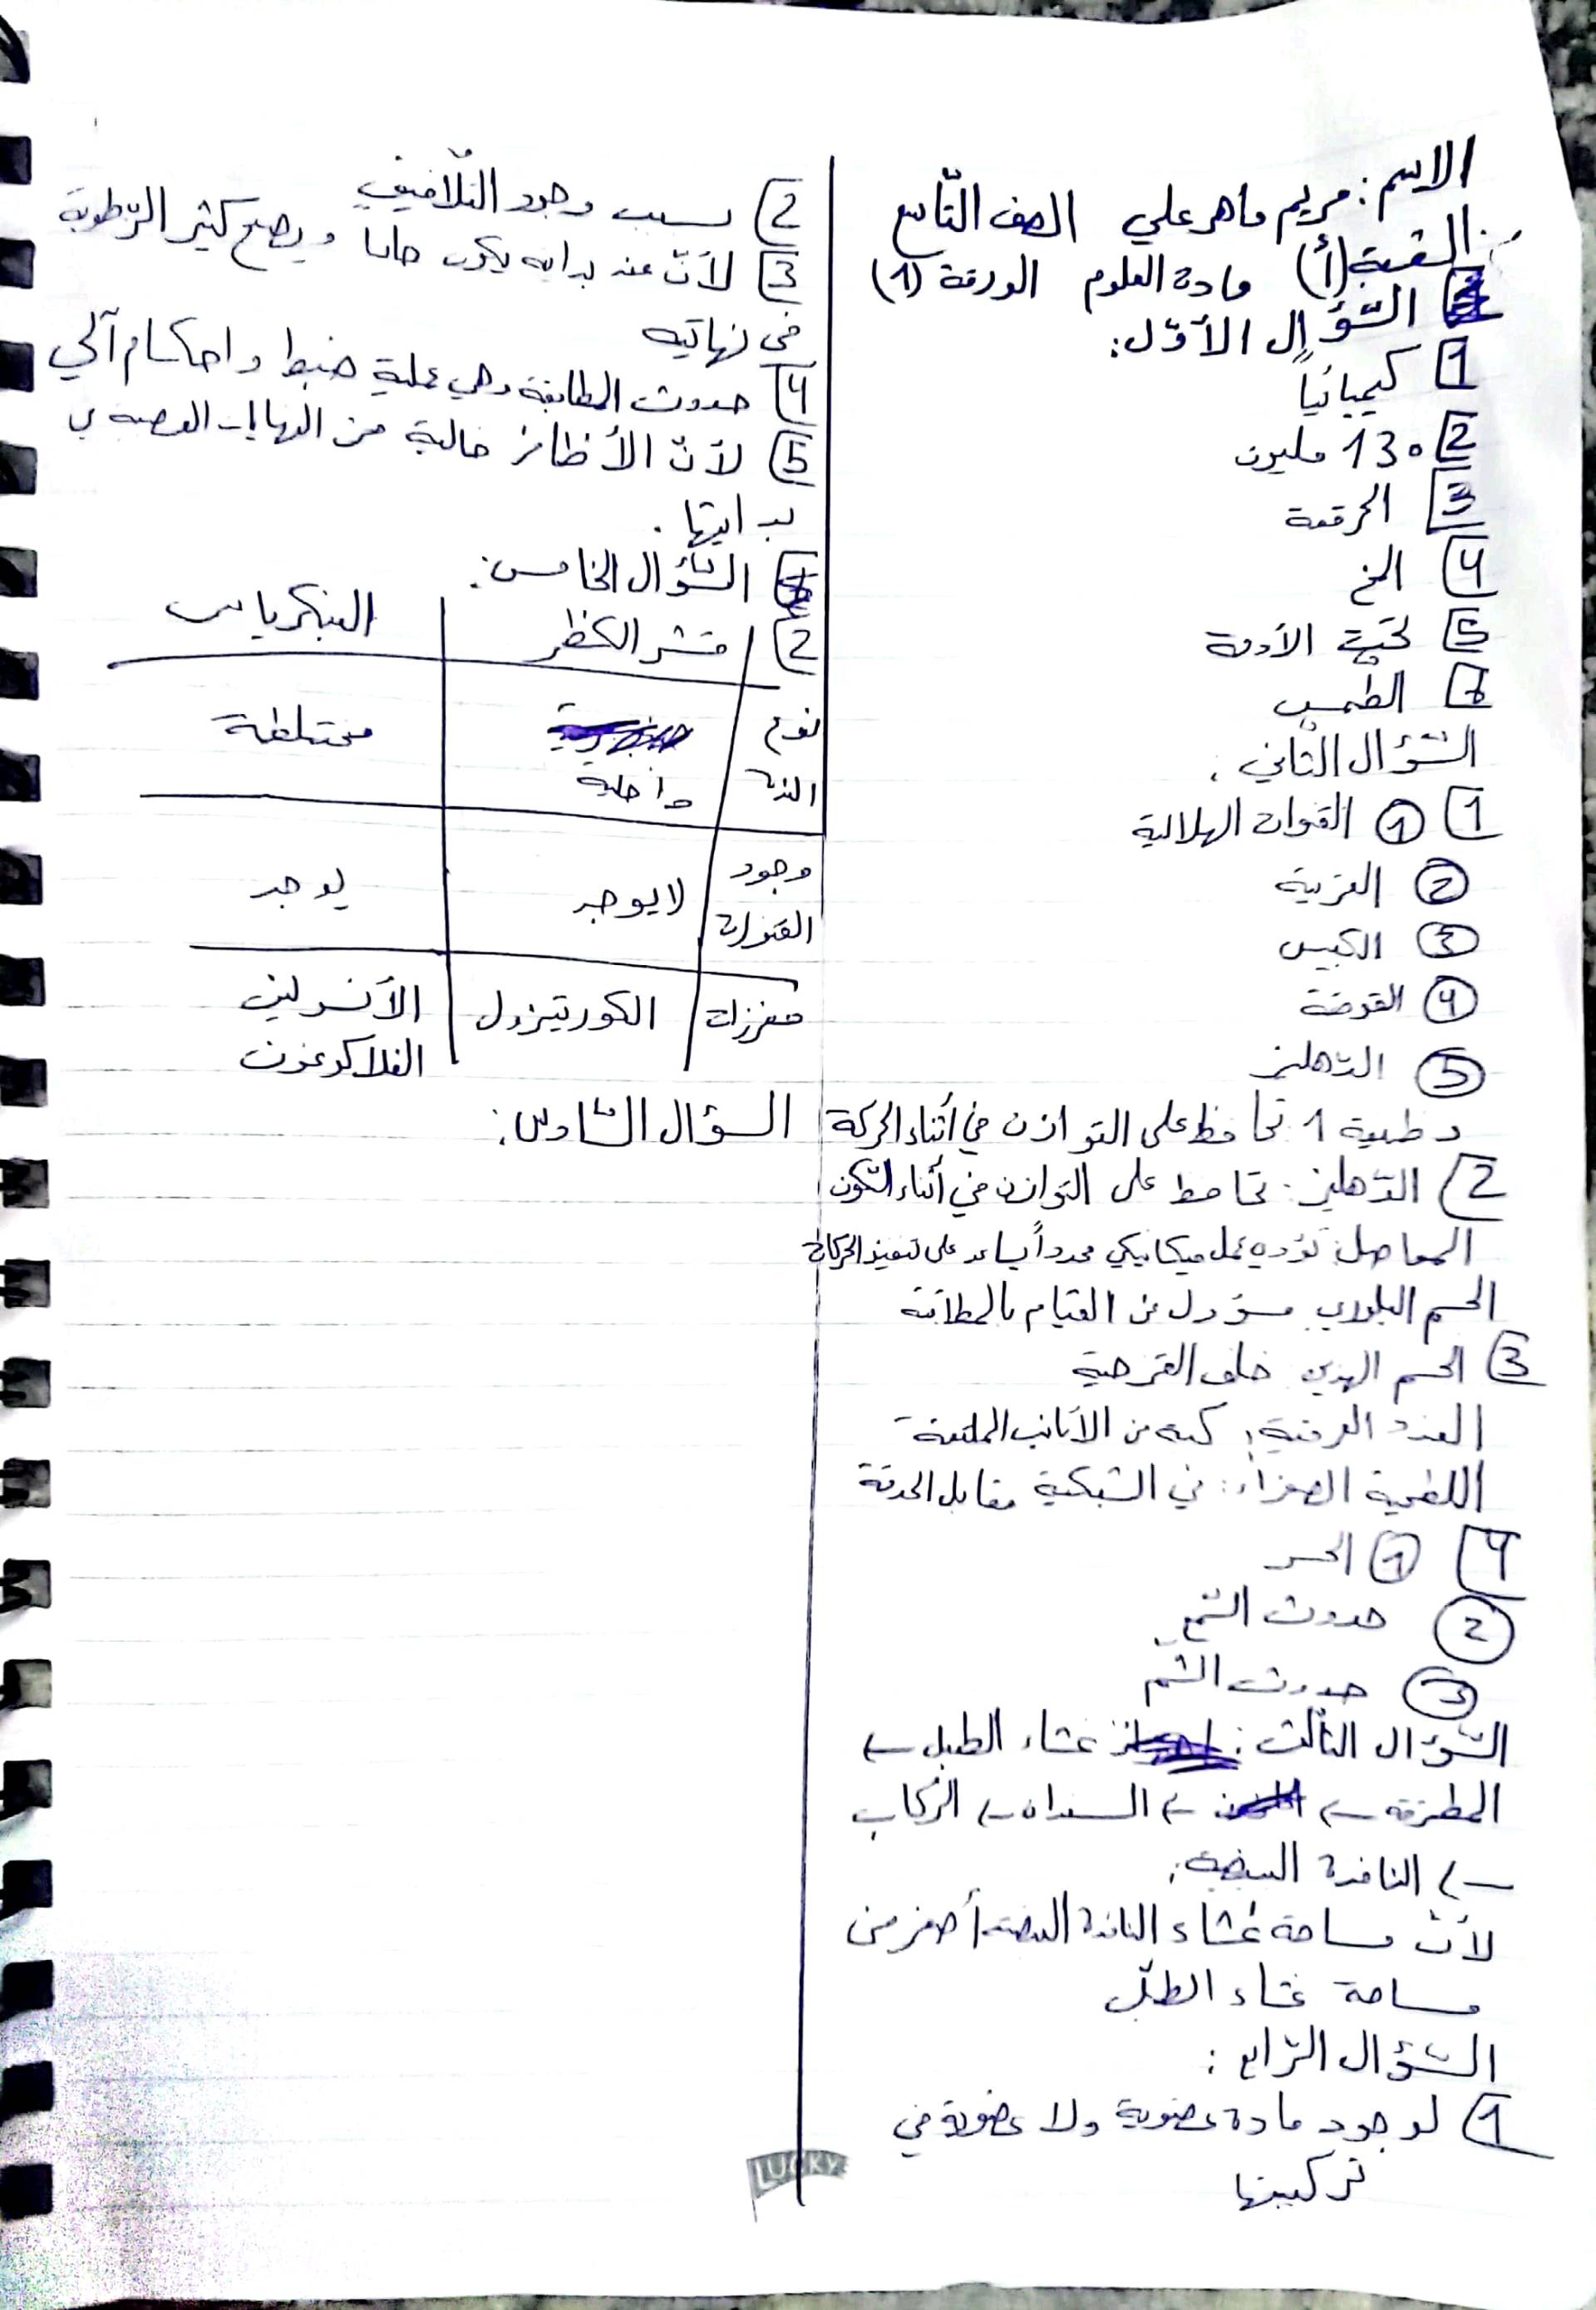 الاسم: مريم ماهر علي الصف التّاسع
الشعبة (أ) مادة العلوم الورقة (1)
السّؤال الأوّل:
1 كيميائياً
2 130 مليون
3 القرقعة
4 المخ
5 تحتيّة الأدمة
6
السّؤال الثّاني:
1 ① القنوات الهلالية
② القربية
③ الكييس
④ القوقعة
⑤ الدّهليز
وظيفة 1 تحافظ على التوازن في أثناء الحركة
2 الدّهليز: تحافظ على التوازن في أثناء السّكون
المفاصل: تؤدي عمل ميكانيكي محدداً يساعد على تنفيذ الحركات
الجسم البلوري مسؤول عن القيام بالمطابقة
3 الجسم الهدبي خلف القزحية
الغدد العرقية: كبة من الأنابيب الملتفة
اللطخة الصفراء: في الشبكية مقابل الحدقة
4 ① الجسر
② حدوث السّمع
③ حدوث الشّم
السّؤال الثّالث: غشاء الطبل ←
المطرقة ← ← السندان ← الرّكاب
← النافذة البيضية.
لأنّ مساحة غشاء النافذة البيضية أصغر من
مساحة غشاء الطبل
السّؤال الرّابع:
1 لوجود مادة عضوية ولا عضوية في
تركيبها
2 بسبب وجود التّلافيف
3 لأنّ عند بدايه يكون جافا ويصبح كثير الرّطوبة
في نهايته
4 حدوث المطابقة وهي عملية ضبط واحكام آلي
5 لأنّ الأظافر خالية من النهايات العصبية
بدايتها.
السّؤال الخامس:
2 قشر الكظر البنكرياس
نوع
الغدة داخلية مختلطة
وجود
القنوات لا يوجد يوجد
مفرزات الكورتيزول الأنسولين
الغلاكوغون
السؤال السّادس:
LUCKY